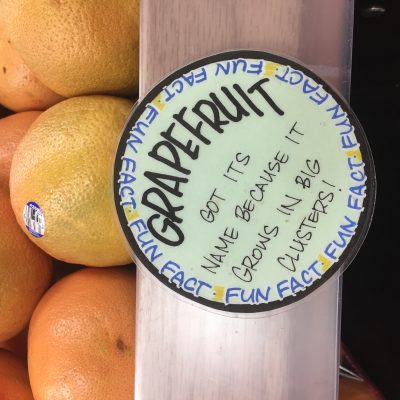 GRAPEFRUIT
GOT ITS
NAME BECAUSE IT
GROWS IN BIG
CLUSTERS!
FUN FACT · FUN FACT · FUN FACT · FUN FACT · FUN FACT · FUN FACT